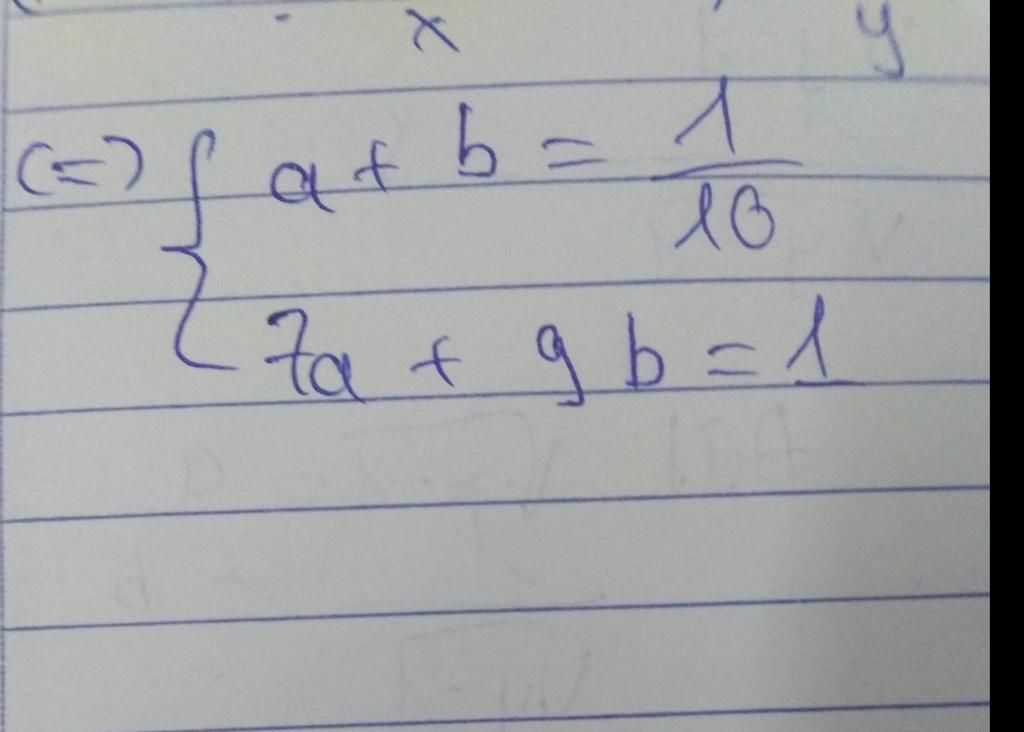 x y
(=) { a + b = 1/10
7a + 9 b = 1